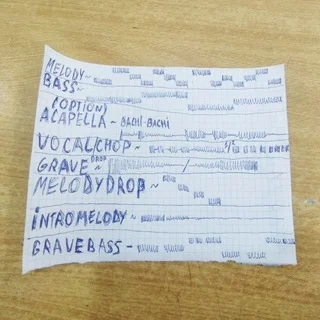 MELODY~
BASS~
(OPTION)
ACAPELLA ~ BACHI-BACHI
VOCALCHOP~
GRAVE DROP ~ /
MELODYDROP~
INTROMELODY~
GRAVEBASS~